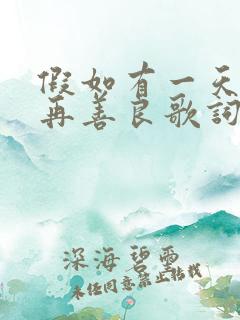 假如有一天
再善良歌词
深海碧雲
未经同意禁止转载